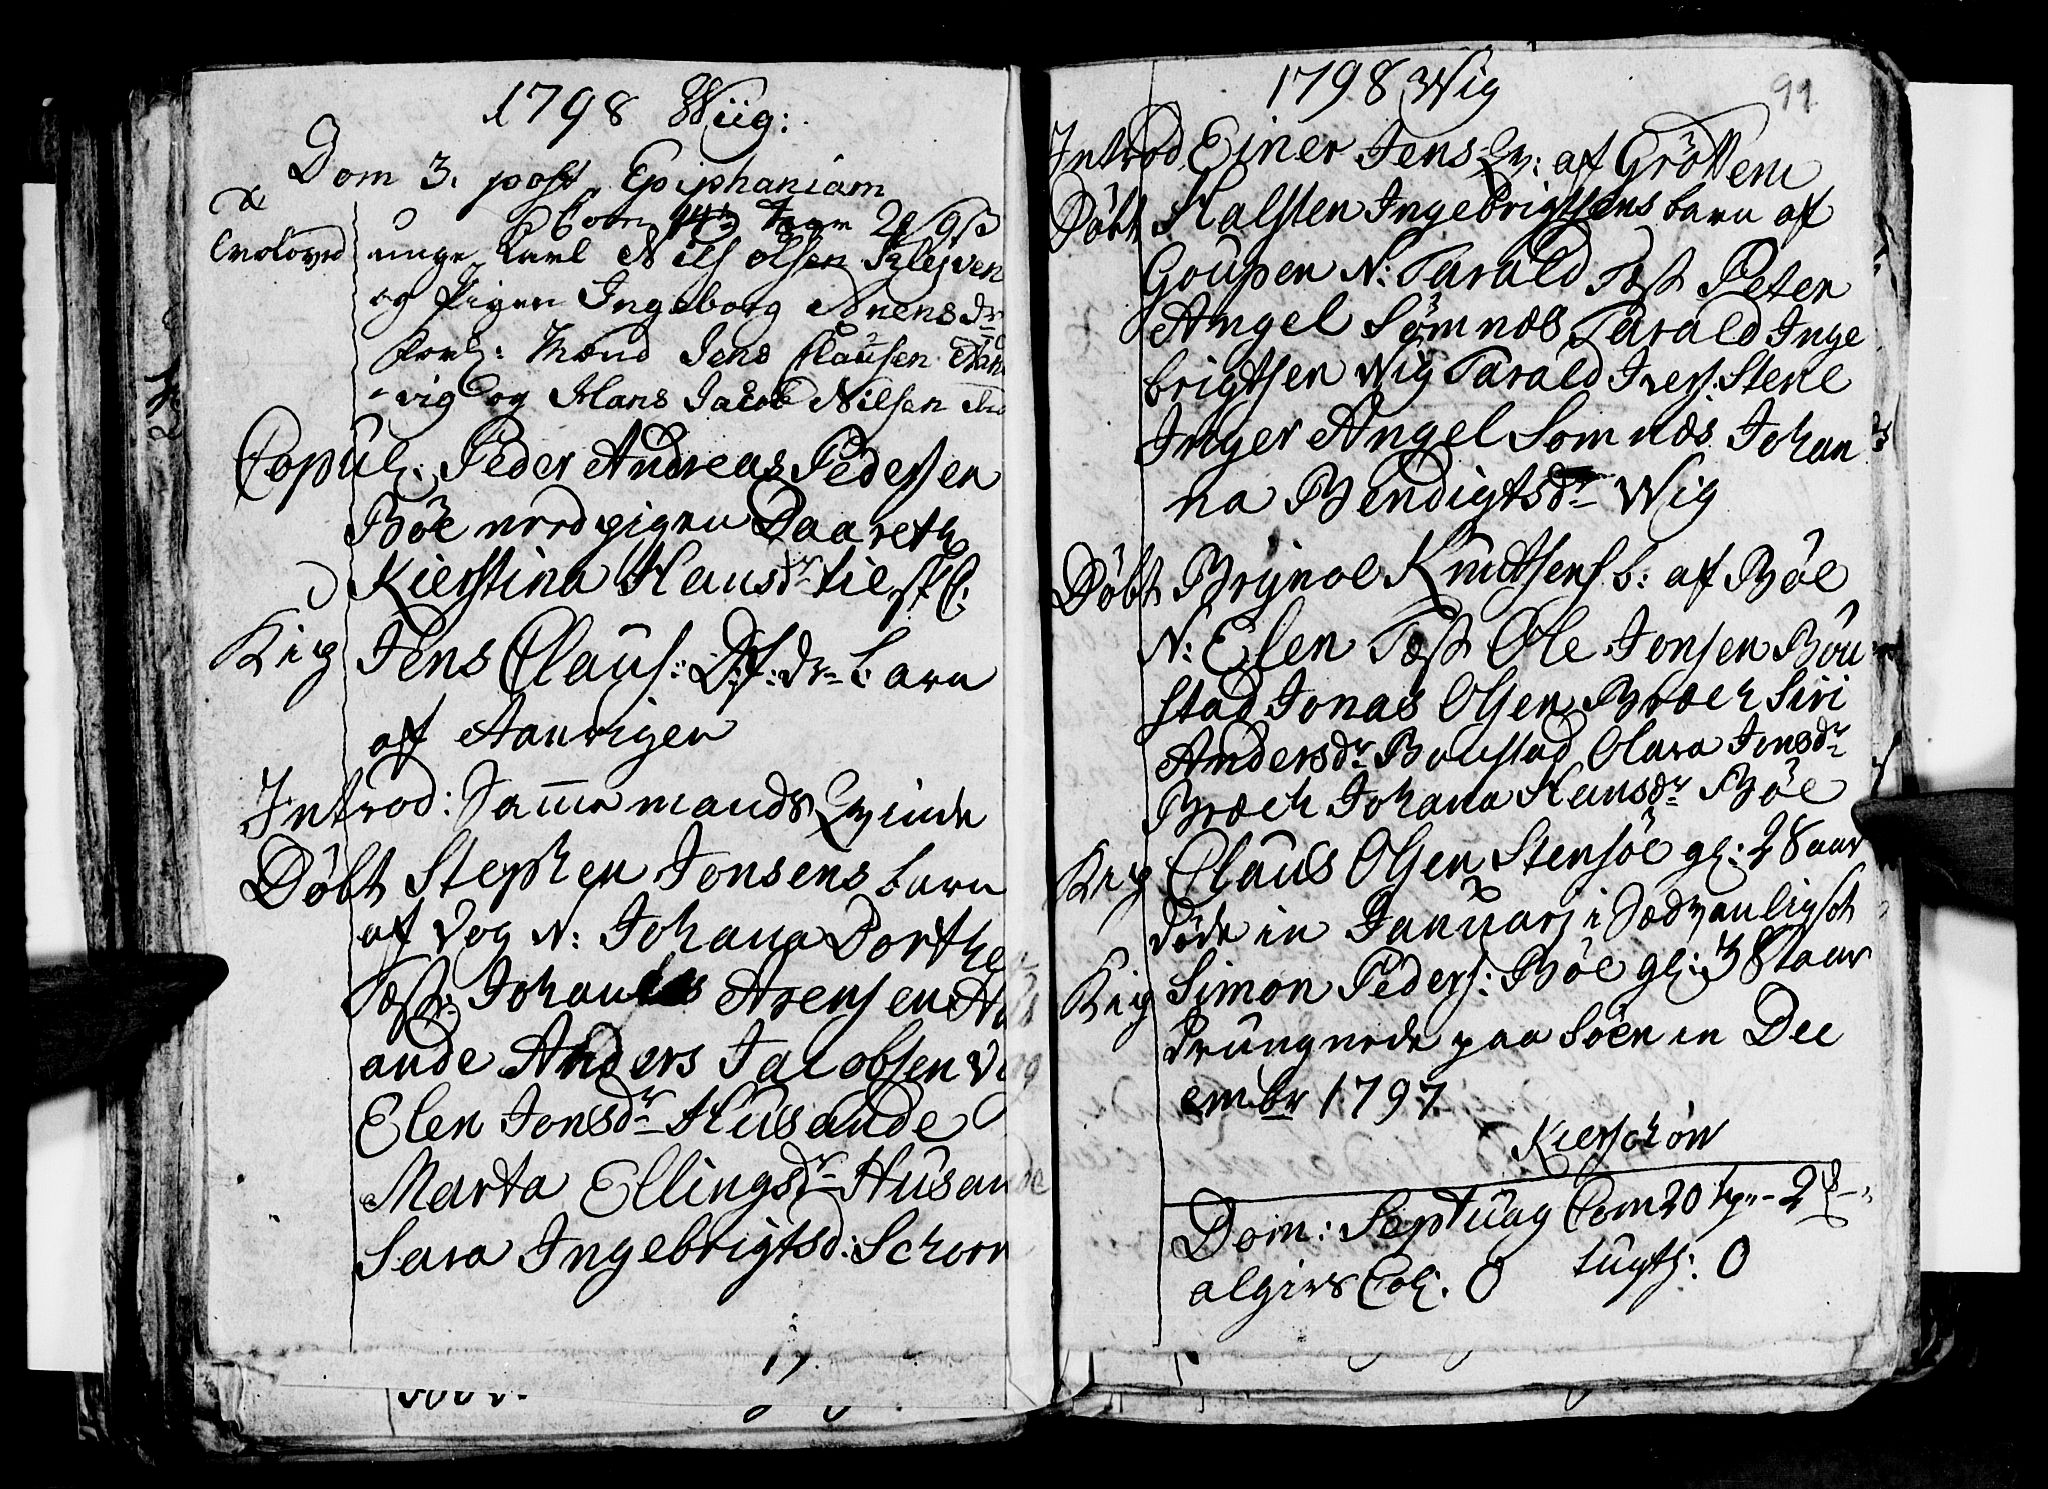 1798 Wiig:
Dom 3. post Epiphaniam
Com
Troloved unge Karl Nils Olsen Klejven
og Pigen Ingeborg Arensdr
Forl: Mænd Jens Clausen Aan
vig og Hans Jacob Nilsen
Copul. Peder Andreas Pedersen
Böe med pigen Daareth
Kierstina Hansdr
Kig Jens Claus: D.f: dr barn
af Aanvigen
Introd: Samme mands Qvinde
Döbt Stephen Jonsens barn
af Vog N: Johana Dorthe
Test: Johannes Arensen
ande Anders Jacobsen
Elen Jonsdr Husande
Marta Ellingsdr Husan
Sara Ingebrigtsd: Schorr
17.
1798 Wig
99
Introd Einer Jens Qv: af Gröttem
Döbt Halsten Ingebrigtsens barn af
Goupen N: Tarald Test Peter
Angel Sömnæs Tarald Inge
brigtsen Wig Tarald Ivers. Stene
Inger Angel Somnæs Johan
na Bendigtsdr Wig
Döbt Brynol Knudtsens b: af Böe
N: Elen Test Ole Jonsen Bou
stad Jonas Olsen Bræch Siri
Andersdr Boustad Olava Jonsdr
Bræch Johana Hansdr Böe
Kig Claus Olsen Stensöe gl: 28 aar
döde in Januarj i Sædvanligsot
Kig Simon Peders: Böe gl: 38 aar
drungnede paa Söen in Dec
embr 1797
Kierschow
Dom: Septuag Com 20
algirs Col. 0 tugth: 0